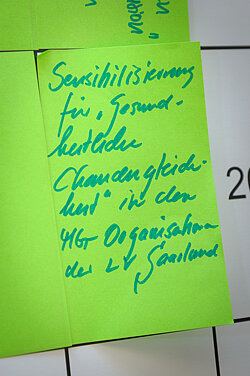 Sensibilisierung
für „Gesund-
heitliche
Chancengleich-
heit" in den
Organisationen
der LV Saarland
20